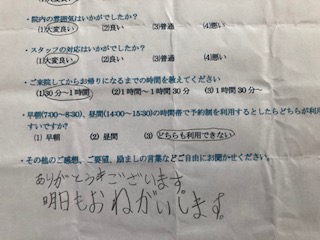 ・院内の雰囲気はいかがでしたか？
(1)大変良い (2)良い (3)普通 (4)悪い
・スタッフの対応はいかがでしたか？
(1)大変良い (2)良い (3)普通 (4)悪い
・ご来院してからお帰りになるまでの時間を教えてください
(1)30分～1時間 (2)1時間～1時間30分 (3)1時間30分～
・早朝(7:00～8:30)、昼間(14:00～15:30)の時間帯で予約制を利用するとしたらどちらが利
すいですか？
(1) 早朝 (2) 昼間 (3) どちらも利用できない
・その他のご感想、ご要望、励ましの言葉などご自由にお聞かせください。
ありがとうございます。
明日もおねがいします。